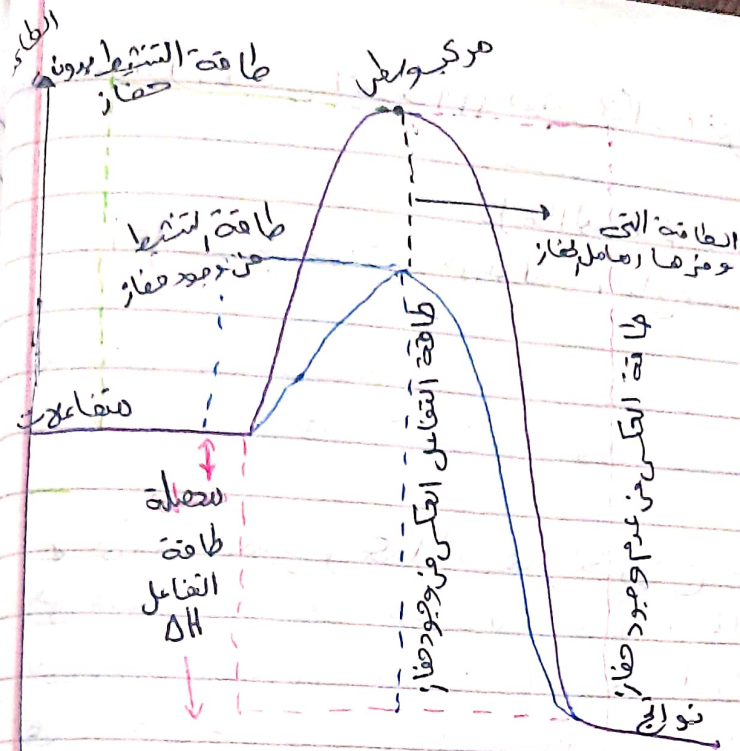 الطاقة
طاقة التنشيط بدون
حفاز
مركب وسطى
طاقة التنشيط
فى وجود حفاز
الطاقة التى
وفرها العامل الحفاز
متفاعلات
محصلة
طاقة
التفاعل
ΔH
طاقة التفاعل العكسى فى وجود حفاز
طاقة العكسى فى عدم وجود حفاز
نواتج